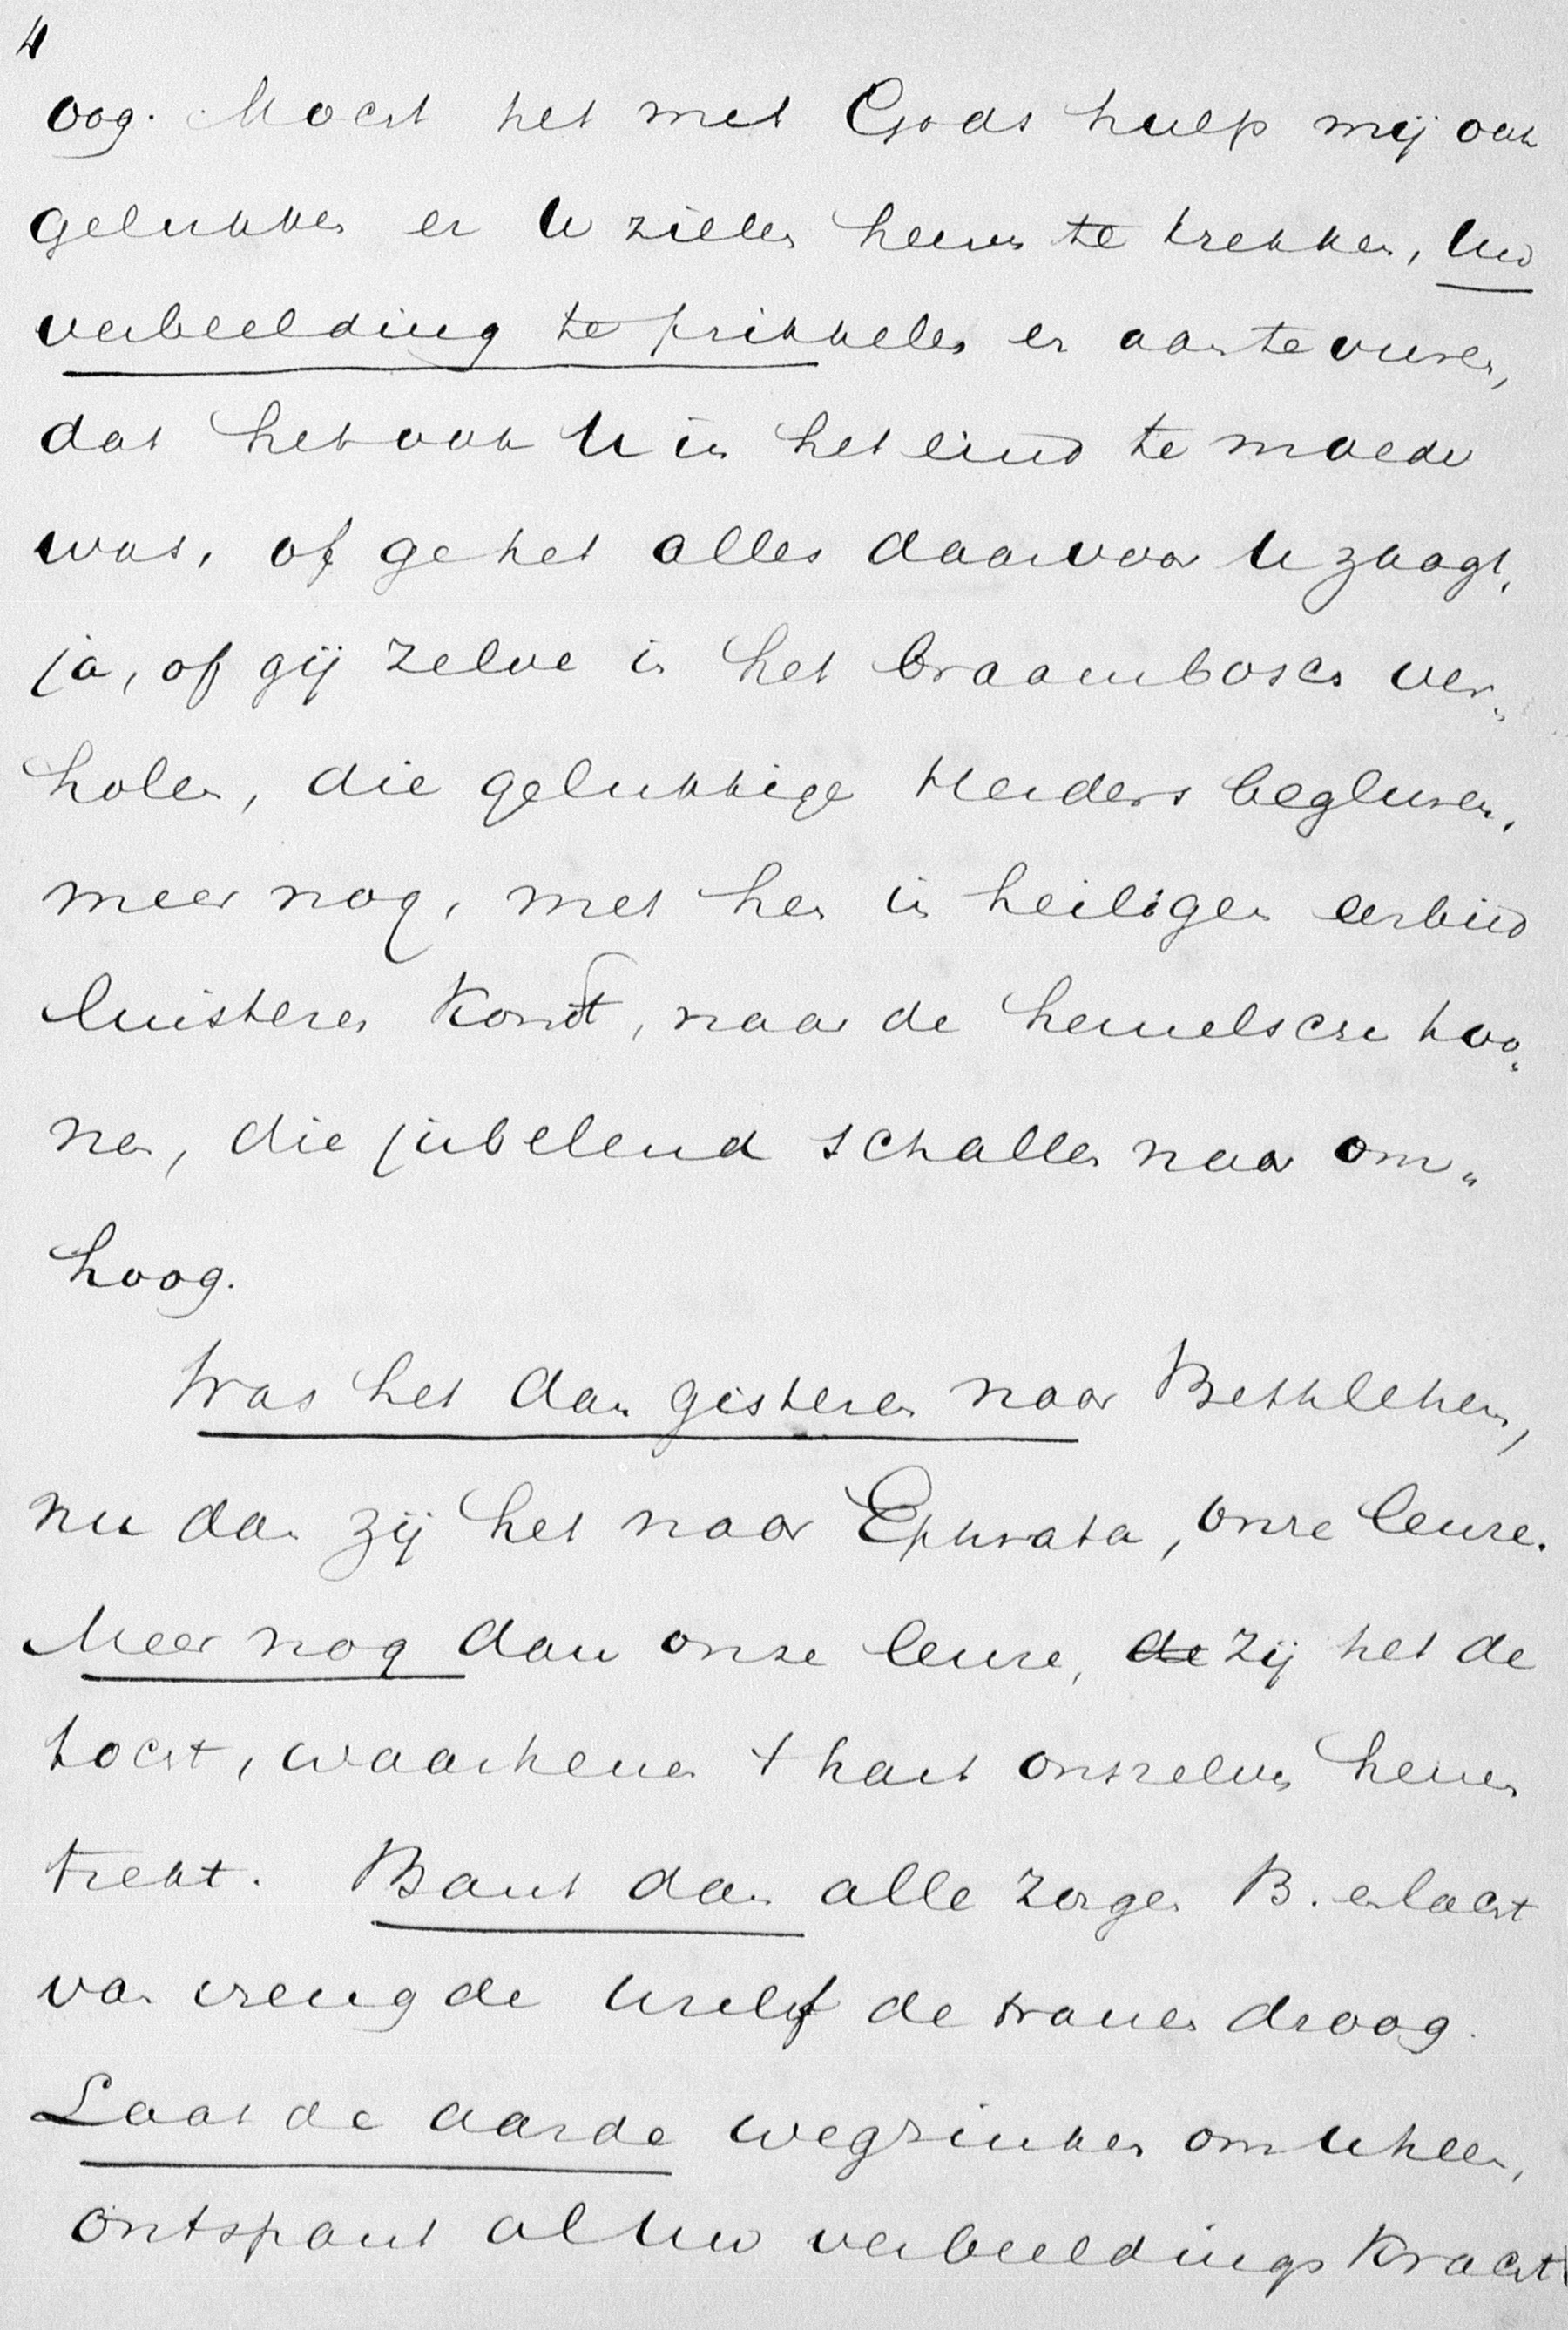 4
oog. Mocht het met Gods hulp mij ook
gelukken er U zielen heen te trekken, Uw
verbeelding te prikkelen en aan te vuren,
dat het ook U in het eind te moede
was, of ge het alles daar voor U zaagt,
ja, of gij zelve in het braambosch ver„
holen, die gelukkige Herders begluren,
meer nog, met hen in heiligen eerbied
luisteren Kondt, naar de hemelsche too„
nen, die jubelend schallen naar om„
hoog.
Was het dan gisteren naar Bethlehem,
nu dan zij het naar Ephrata, onze leuze.
Meer nog dan onze leuze, de zij het de
tocht, waarhenen t hart onszelven henen
trekt. Bant dan alle zorgen B. en lacht
van vreugde Uzelf de tranen droog.
Laat de aarde wegzinken om U heen,
ontspant al Uw verbeeldings Kracht